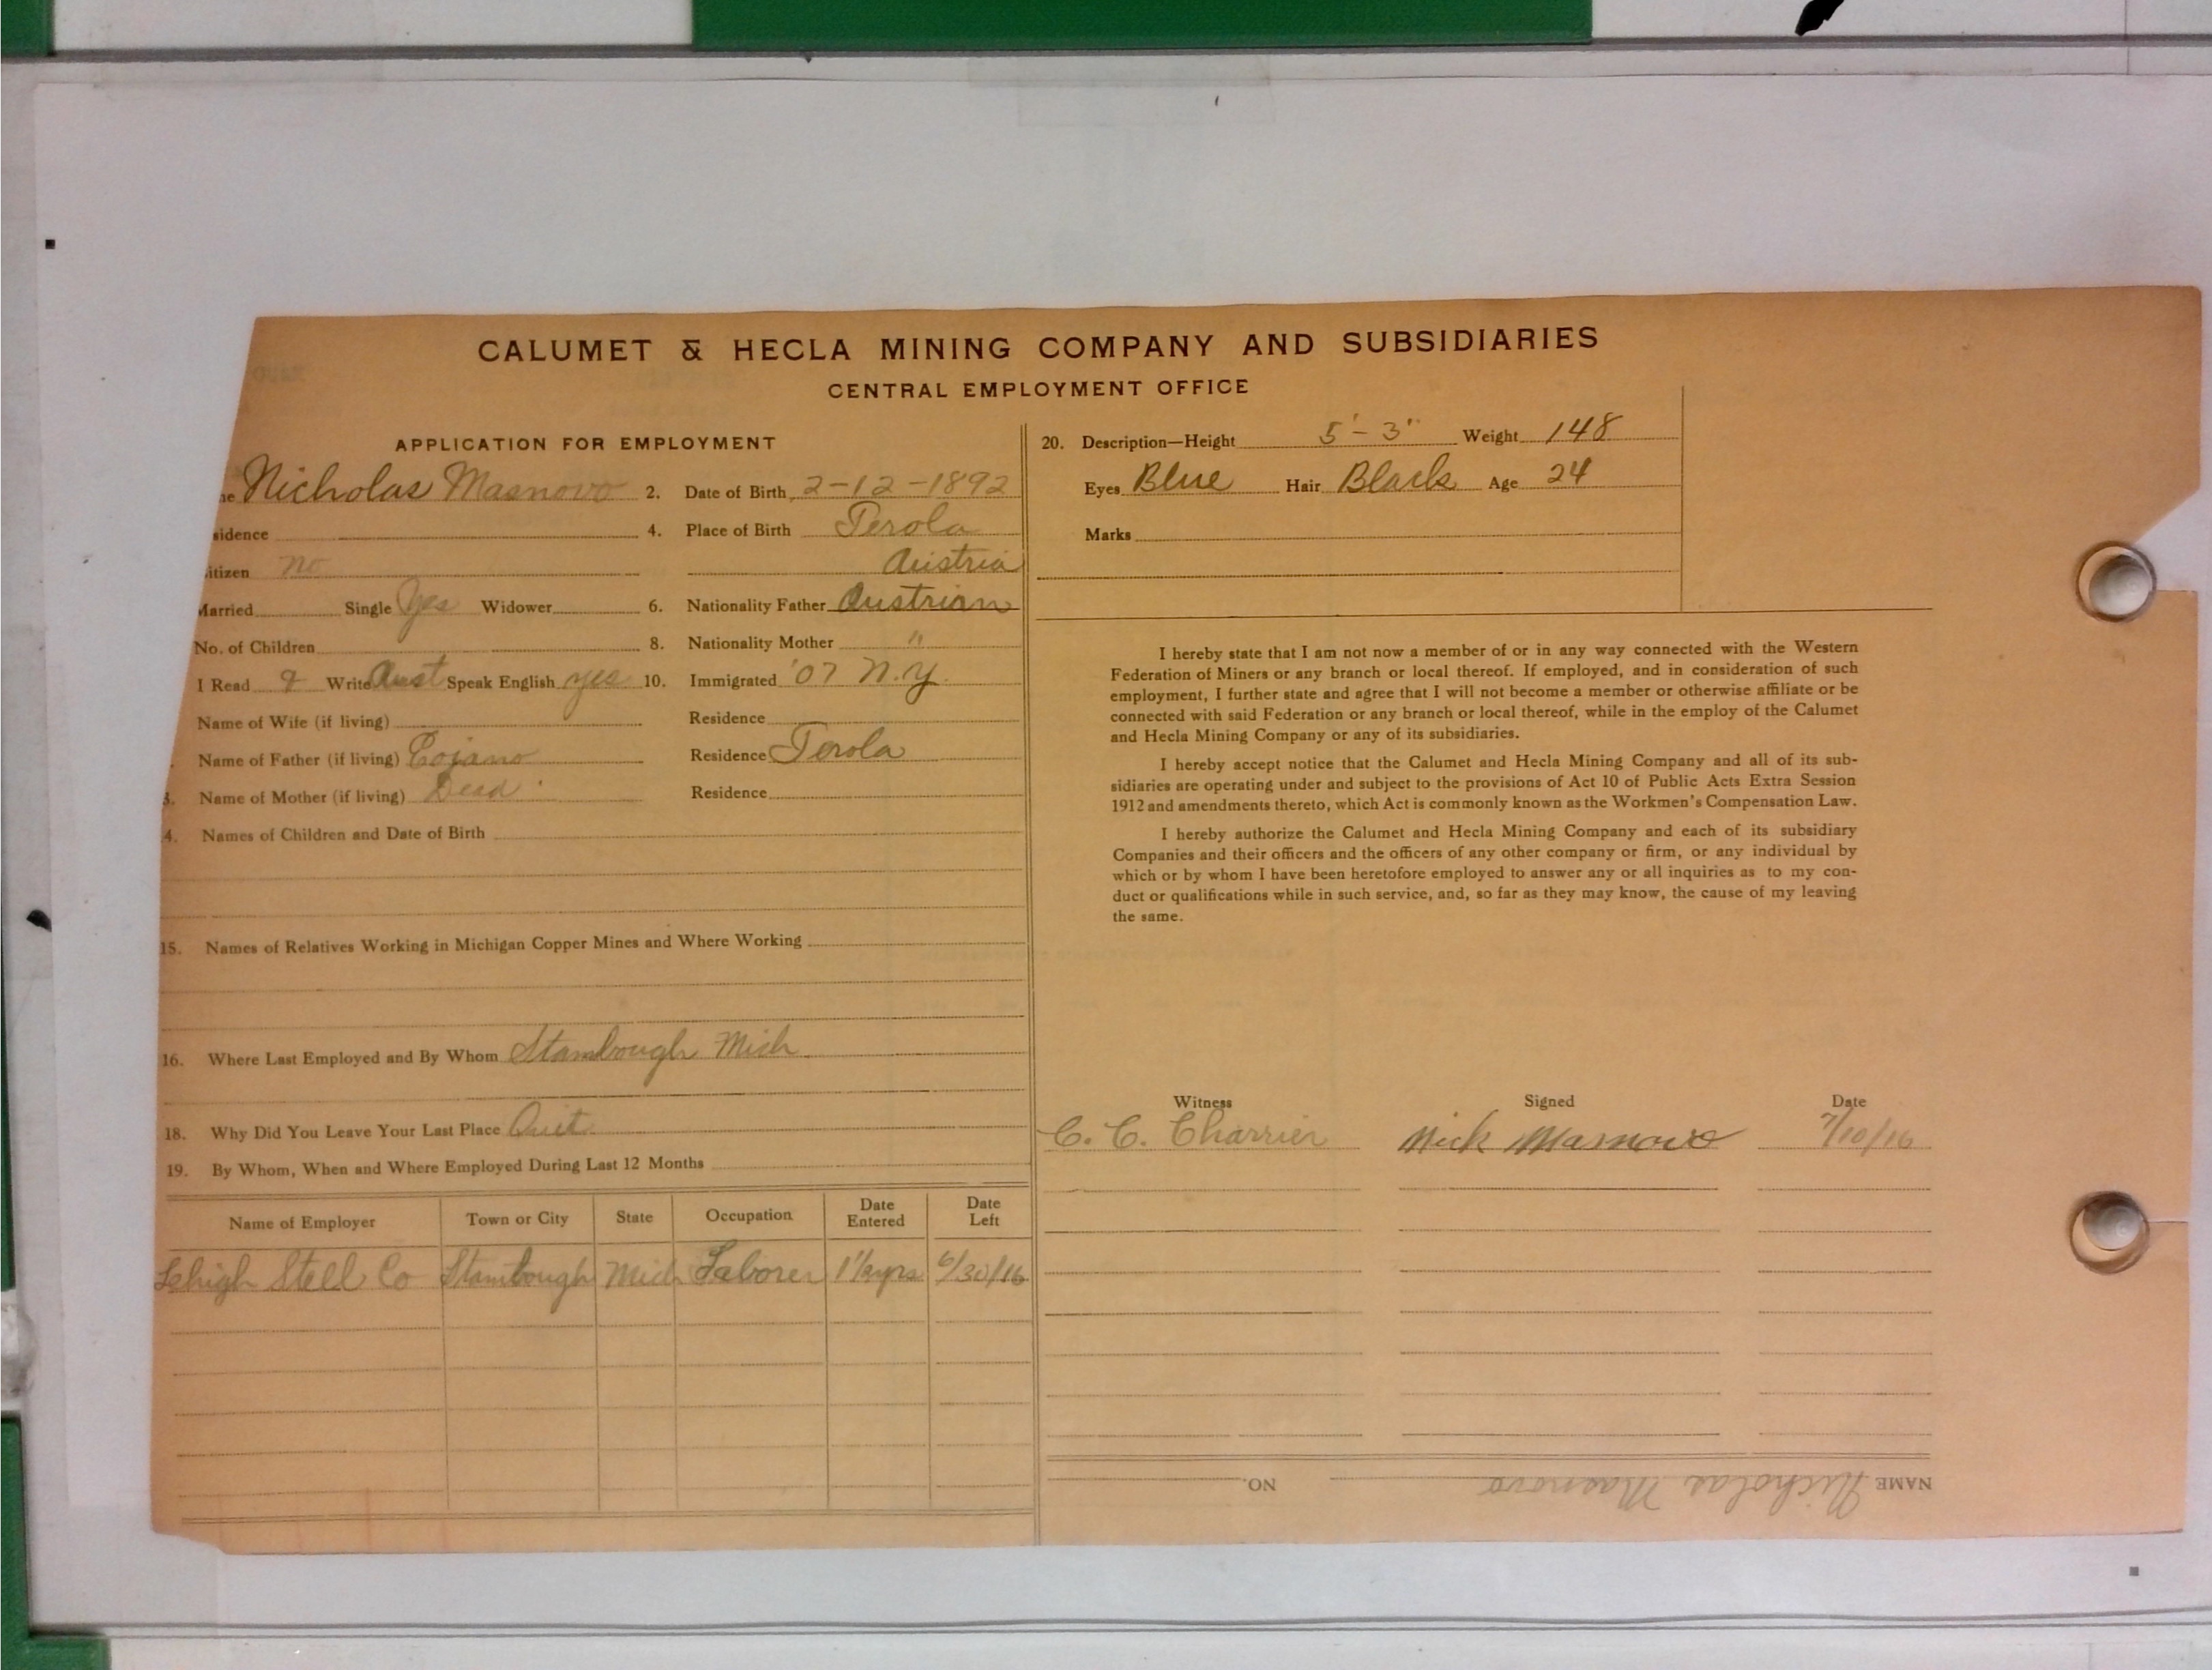 CALUMET & HECLA MINING COMPANY AND SUBSIDIARIES
CENTRAL EMPLOYMENT OFFICE
APPLICATION FOR EMPLOYMENT
ne Nicholas Masnovo 2. Date of Birth 2-12-1892
sidence 4. Place of Birth Terola
itizen no Austria
Married Single Yes Widower 6. Nationality Father Austrian
No. of Children 8. Nationality Mother "
I Read & Write Aust Speak English yes 10. Immigrated '07 N.Y.
Name of Wife (if living) Residence
Name of Father (if living) Cojano Residence Terola
3. Name of Mother (if living) Dead Residence
4. Names of Children and Date of Birth
15. Names of Relatives Working in Michigan Copper Mines and Where Working
16. Where Last Employed and By Whom Stambough Mich
18. Why Did You Leave Your Last Place Quit
19. By Whom, When and Where Employed During Last 12 Months
Name of Employer Town or City State Occupation Date Entered Date Left
Lehigh Steel Co Stambough Mich Laborer 1½yrs 6/30/16
20. Description—Height 5'-3" Weight 148
Eyes Blue Hair Black Age 24
Marks
I hereby state that I am not now a member of or in any way connected with the Western
Federation of Miners or any branch or local thereof. If employed, and in consideration of such
employment, I further state and agree that I will not become a member or otherwise affiliate or be
connected with said Federation or any branch or local thereof, while in the employ of the Calumet
and Hecla Mining Company or any of its subsidiaries.
I hereby accept notice that the Calumet and Hecla Mining Company and all of its sub-
sidiaries are operating under and subject to the provisions of Act 10 of Public Acts Extra Session
1912 and amendments thereto, which Act is commonly known as the Workmen's Compensation Law.
I hereby authorize the Calumet and Hecla Mining Company and each of its subsidiary
Companies and their officers and the officers of any other company or firm, or any individual by
which or by whom I have been heretofore employed to answer any or all inquiries as to my con-
duct or qualifications while in such service, and, so far as they may know, the cause of my leaving
the same.
Witness Signed Date
C. C. Charrier Nick Masnovo 7/10/16
NAME Nicholas Masnovo NO.